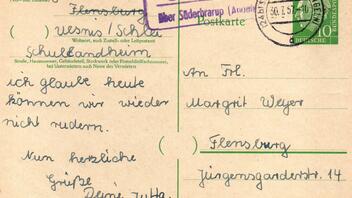 Flensburg
über Süderbrarup
Ulsnis/Schlei
Schullandheim
Wohnort, auch Zustell- oder Leitpostamt
Straße, Hausnummer, Gebäudeteil, Stockwerk oder Postschließfachnummer,
bei Untermietern auch Name des Vermieters
ich glaube heute
können wir wieder
nicht rudern.
Nun herzliche
Grüße
Deine Jutta.
Postkarte
57
10
DEUTSCHE
An Frl.
Margrit Weyer
Flensburg
Jürgensgaarderstr. 14